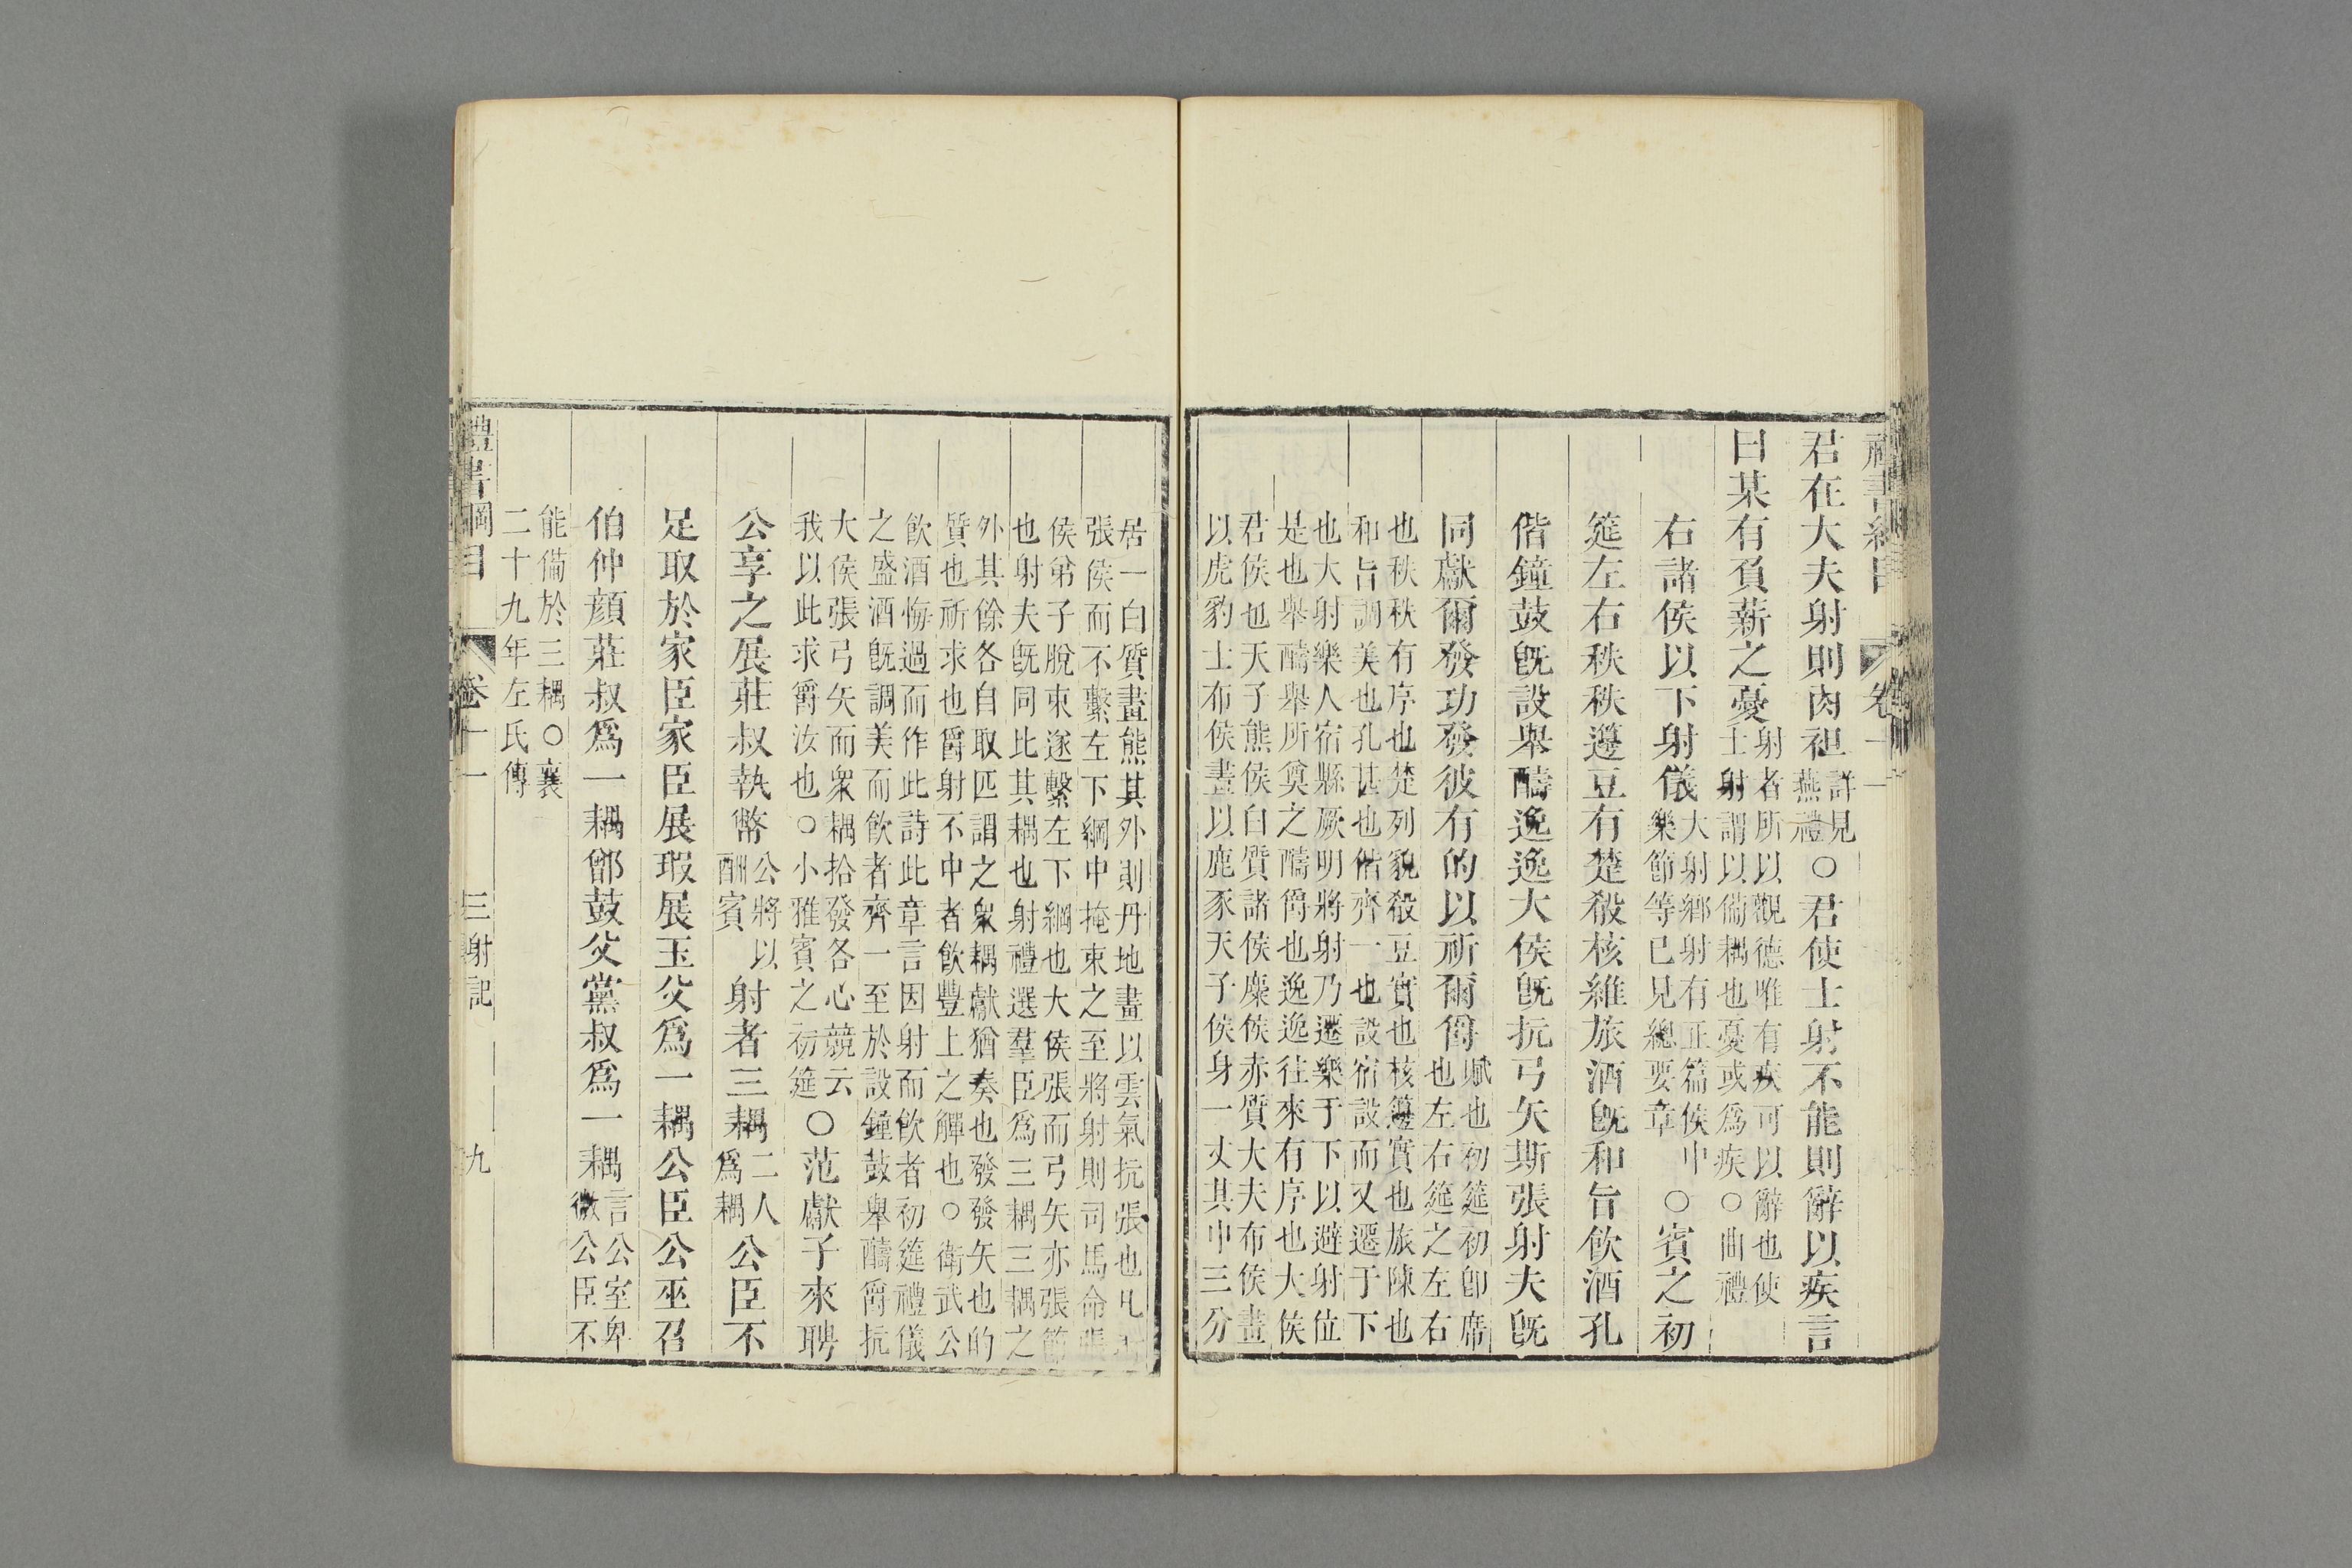 禮書綱目 卷十一
君在大夫射則肉袒詳見燕禮○君使士射不能則辭以疾言
曰某有負薪之憂射者所以觀德唯有疾可以辭也使士射謂以備耦也憂或爲疾○曲禮
右諸侯以下射儀大射鄉射有正篇侯中樂節等已見總要章○賓之初
筵左右秩秩籩豆有楚殽核維旅酒旣和旨飮酒孔
偕鐘鼓旣設舉醻逸逸大侯旣抗弓矢斯張射夫旣
同獻爾發功發彼有的以祈爾爵賦也初筵初卽席也左右筵之左右
也秩秩有序也楚列貌殽豆實也核籩實也旅陳也
和旨調美也孔甚也偕齊一也設宿設而又遷于下
也大射樂人宿縣厥明將射乃遷樂于下以避射位
是也舉醻舉所奠之醻爵也逸逸往來有序也大侯
君侯也天子熊侯白質諸侯麋侯赤質大夫布侯畫
以虎豹士布侯畫以鹿豕天子侯身一丈其中三分
居一白質畫熊其外則丹地畫以雲氣抗張也凡
張侯而不繫左下綱中掩束之至將射則司馬命張
侯弟子脫束遂繫左下綱也大侯張而弓矢亦張節
也射夫旣同比其耦也射禮選羣臣爲三耦三耦之
外其餘各自取匹謂之衆耦獻猶奏也發發矢也的
質也祈求也爵射不中者飮豐上之觶也○衛武公
飮酒悔過而作此詩此章言因射而飮者初筵禮儀
之盛酒旣調美而飮者齊一至於設鐘鼓舉醻爵抗
大侯張弓矢而衆耦拾發各心競云
我以此求爵汝也○小雅賓之初筵○范獻子來聘
公享之展莊叔執幣公將以酬賓射者三耦二人爲耦公臣不
足取於家臣家臣展瑕展玉父爲一耦公臣公巫召
伯仲顏莊叔爲一耦鄫鼓父黨叔爲一耦言公室卑微公臣不
能備於三耦○襄
二十九年左氏傳
禮書綱目 卷十一 三射記 九